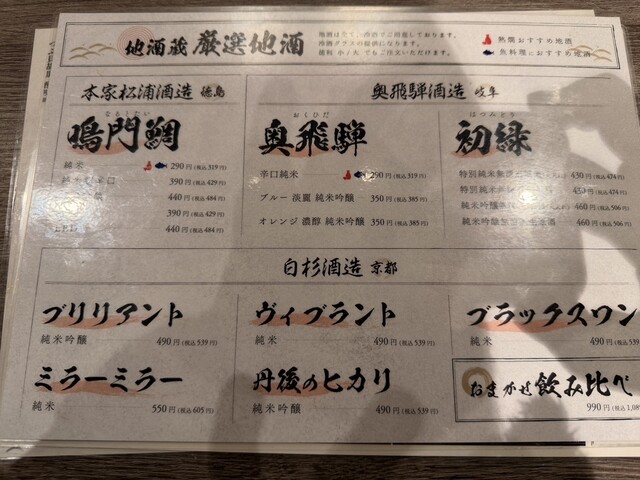 地酒蔵 厳選地酒
地酒は全て、冷酒でご用意しております。
冷酒グラスの提供になります。
徳利 小/大 でもご注文いただけます。
熱燗おすすめ地酒
魚料理におすすめ地酒
本家松浦酒造 徳島
なるとたい
鳴門鯛
純米 290円(税込319円)
390円(税込429円)
440円(税込484円)
390円(税込429円)
440円(税込484円)
奥飛騨酒造 岐阜
おくひだ
奥飛騨
辛口純米 290円(税込319円)
ブルー 淡麗 純米吟醸 350円(税込385円)
オレンジ 濃醇 純米吟醸 350円(税込385円)
はつみどり
初緑
特別純米無濾過 430円(税込474円)
特別純米 430円(税込474円)
純米吟醸 460円(税込506円)
純米吟醸 460円(税込506円)
白杉酒造 京都
ブリリアント
純米吟醸 490円(税込539円)
ヴィブラント
純米 490円(税込539円)
ブラックスワン
純米 490円(税込539円
ミラーミラー
純米 550円(税込605円)
丹後のヒカリ
純米吟醸 490円(税込539円)
おまかせ飲み比べ
990円(税込1,08